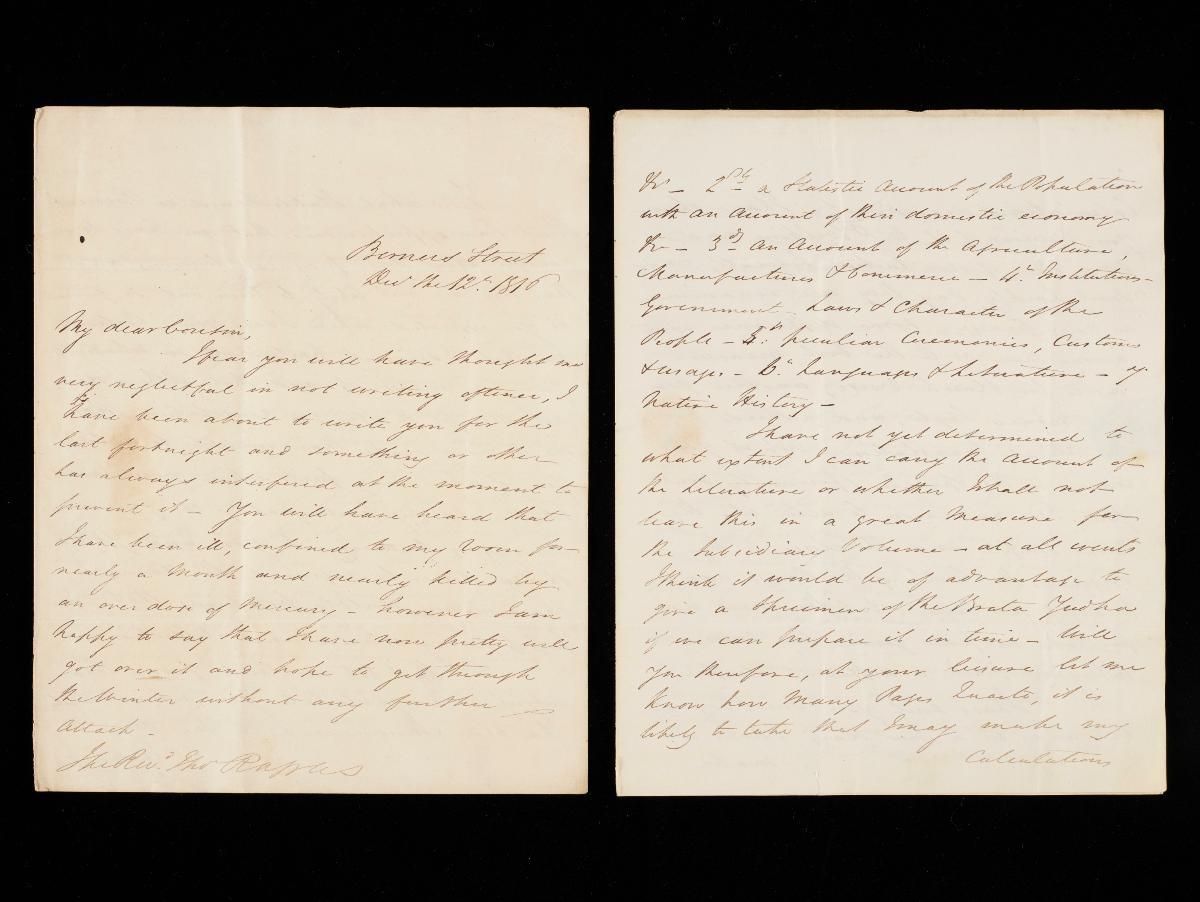 Berners Street
Decr the 12th. 1816
My dear Cousin,
I fear you will have thought me
very neglectful in not writing oftener, I
have been about to write you for the
last fortnight and something or other
has always interfered at the moment to
prevent it - You will have heard that
I have been ill, confined to my room for
nearly a month and nearly killed by
an over dose of Mercury - however I am
happy to say that I have now pretty well
got over it and hope to get through
the Winter without any further
attack -
The Revd. Thos Raffles
&c - 2dly a Statistic Account of the Population
with an Account of their domestic economy
&c - 3dly an Account of the Agriculture,
Manufactures & Commerce - 4th. Institutions -
Government - Laws & Character of the
People - 5th. peculiar Ceremonies, Customs
& usages - 6th Languages & Literature - 7.
Native History -
I have not yet determined to
what extent I can carry the Account of
the Literature or whether I shall not
leave this in a great Measure for
the Subsidiary Volume - at all events
I think it would be of advantage to
give a Specimen of the Brata Yudha
if we can prepare it in time - Will
you therefore, at your leisure let me
know how many Pages Quarto, it is
likely to take that I may make my
Calculations